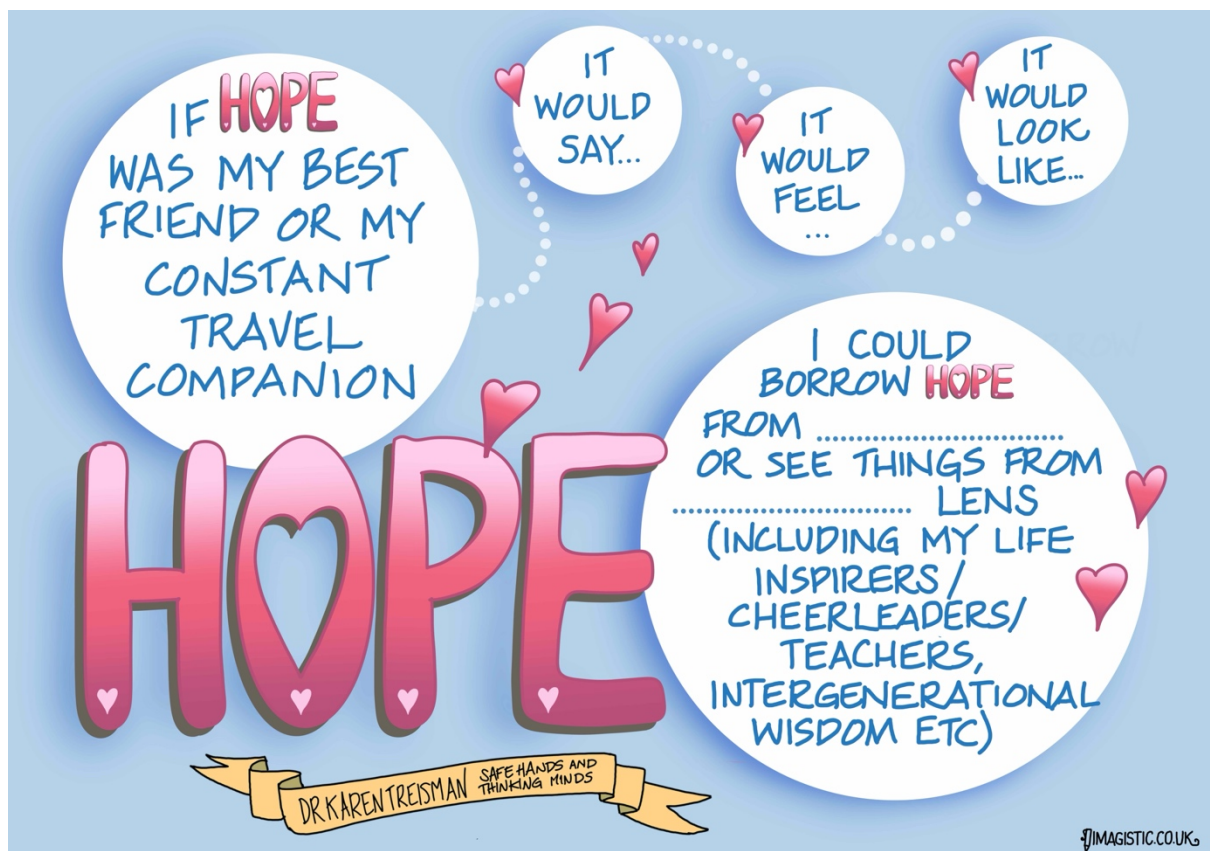 IF HOPE
WAS MY BEST
FRIEND OR MY
CONSTANT
TRAVEL
COMPANION
IT
WOULD
SAY...
IT
WOULD
FEEL
...
IT
WOULD
LOOK
LIKE...
HOPE
I COULD
BORROW HOPE
FROM ..............................
OR SEE THINGS FROM
.............................. LENS
(INCLUDING MY LIFE
INSPIRERS/
CHEERLEADERS/
TEACHERS,
INTERGENERATIONAL
WISDOM ETC)
DR KAREN TREISMAN SAFE HANDS AND
THINKING MINDS
IMAGISTIC.CO.UK